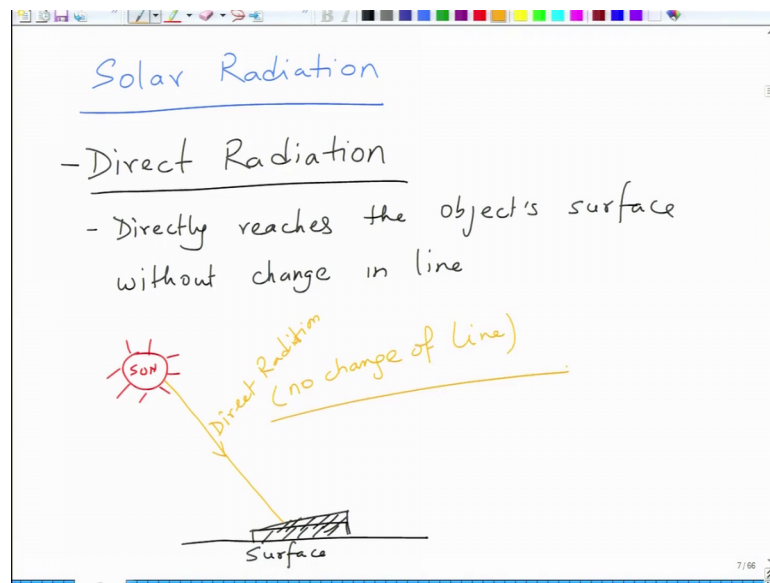 Solar Radiation
- Direct Radiation
- Directly reaches the object's surface
without change in line
SUN
Direct Radition
(no change of line)
Surface
7/66